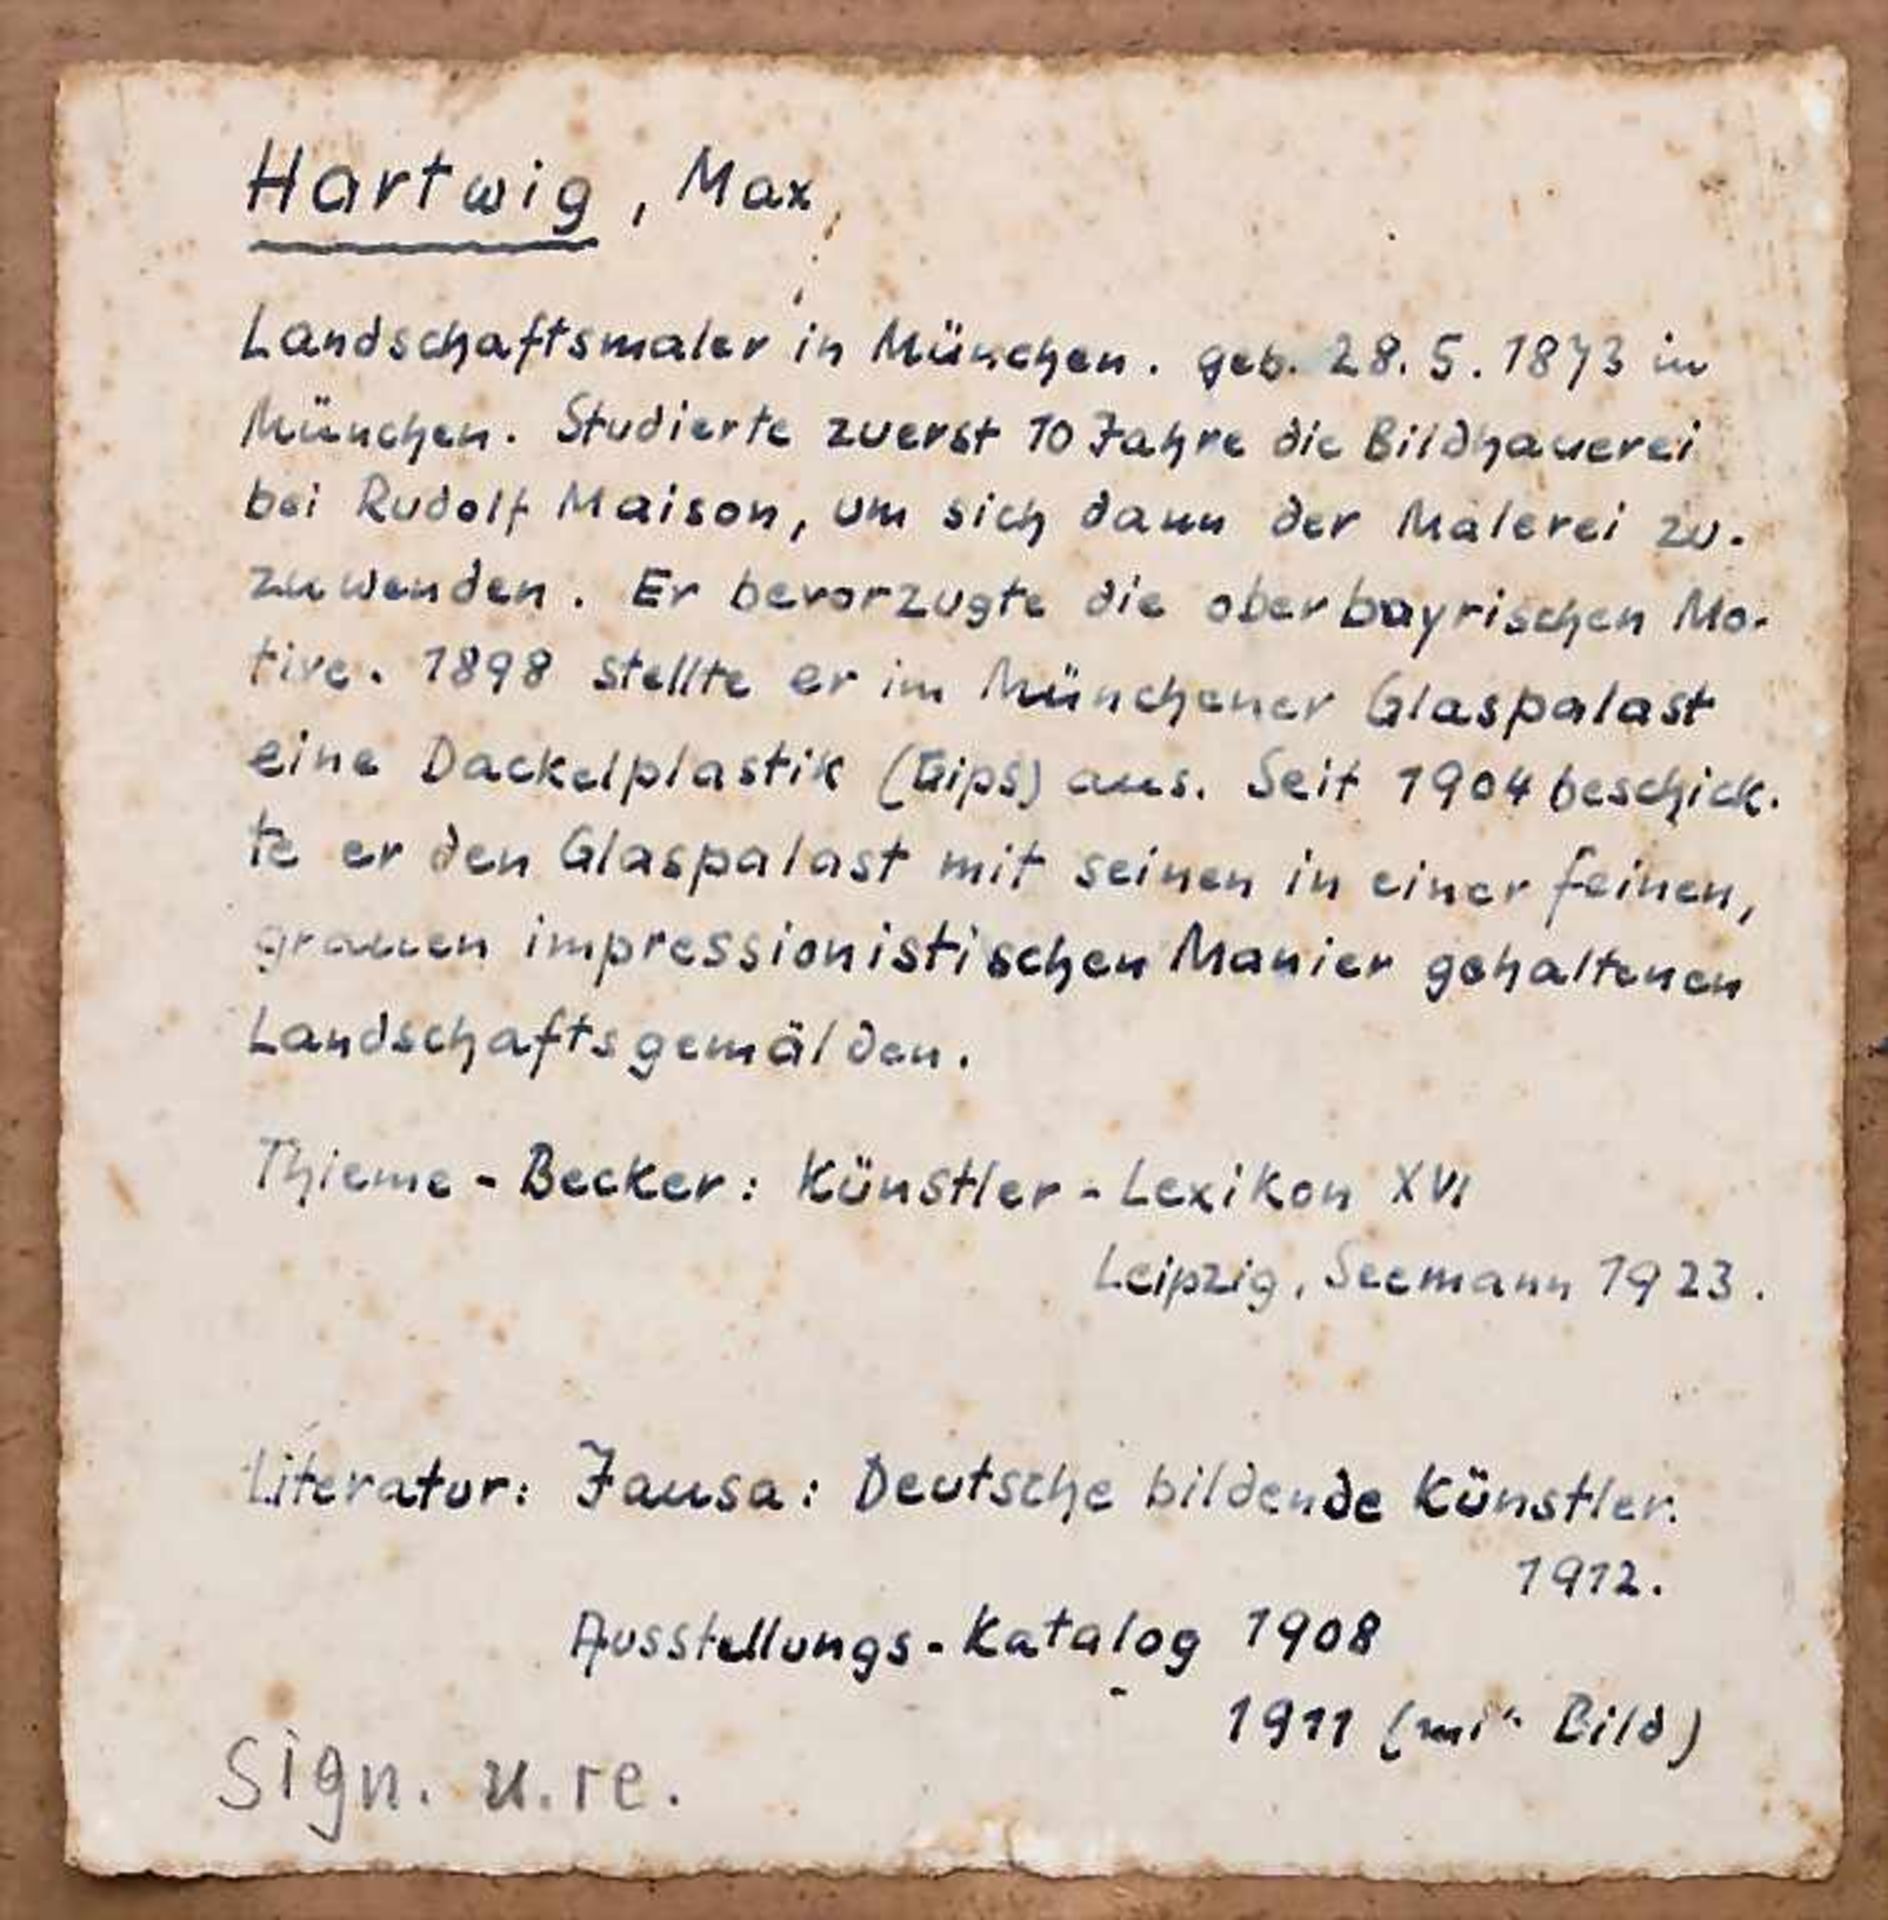 Hartwig, Max
Landschaftsmaler in München. geb. 28.5.1873 in
München. Studierte zuerst 10 Jahre die Bildhauerei
bei Rudolf Maison, um sich dann der Malerei zu-
zuwenden. Er bevorzugte die oberbayrischen Mo-
tive. 1898 stellte er im Münchener Glaspalast
eine Dackelplastik (Gips) aus. Seit 1904 beschick-
te er den Glaspalast mit seinen in einer feinen,
grauen impressionistischen Manier gehaltenen
Landschaftsgemälden.
Thieme-Becker: Künstler-Lexikon XVI
Leipzig, Seemann 1923.
Literatur: Jausa: Deutsche bildende Künstler.
1912.
Ausstellungs-Katalog 1908
1911 (mit Bild)
Sign. u.re.